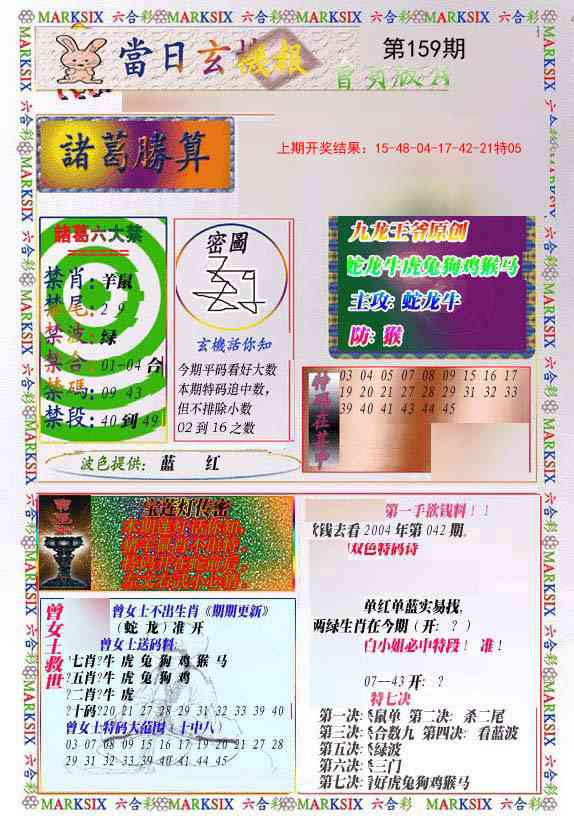 MARKSIX 六合彩 MARKSIX 六合彩 MARKSIX 六合彩 MARKSIX 六合彩
當日玄機報
第159期
諸葛勝算
上期开奖结果：15-48-04-17-42-21特05
諸葛六大禁
禁肖: 羊鼠
禁尾: 2 9
禁波: 绿
禁合: 01-04 合
禁碼: 09 43
禁段: 40 到 49
密圖
玄機話你知
今期平码看好大数
本期特码追中数,
但不排除小数
02 到 16 之数
九龙王爷原创
蛇龙牛虎兔狗鸡猴马
主攻: 蛇龙牛
防: 猴
03 04 05 07 08 09 15 16 17
19 20 21 27 28 29 31 32 33
39 40 41 43 44 45
波色提供: 蓝 红
宝莲灯传密
曾女士救世
曾女士不出生肖《期期更新》
(蛇 龙) 准 开
曾女士送码料:
七肖?牛 虎 兔 狗 鸡 猴 马
?五肖?牛 虎 兔 狗 鸡
?二肖?牛 虎
?十码?20 21 27 28 29 31 32 33 39 40
曾女士特码大范围〈十中八〉
03 07 08 09 15 16 17 19 20 21 27 28
29 31 32 33 39 40 41 44 45
第一手欲钱料！！
欲钱去看 2004 年第 042 期。
双色特码诗
单红单蓝实易找,
两绿生肖在今期 (开: ? )
白小姐必中特段！ 准！
07--43 开: ?
特七决
第一决:杀鼠单 第二决: 杀二尾
第三决:杀合数九 第四决: 看蓝波
第五决:杀绿波
第六决:杀三门
第七决:看好虎兔狗鸡猴马
MARKSIX 六合彩 MARKSIX 六合彩 MARKSIX 六合彩 MARKSIX 六合彩